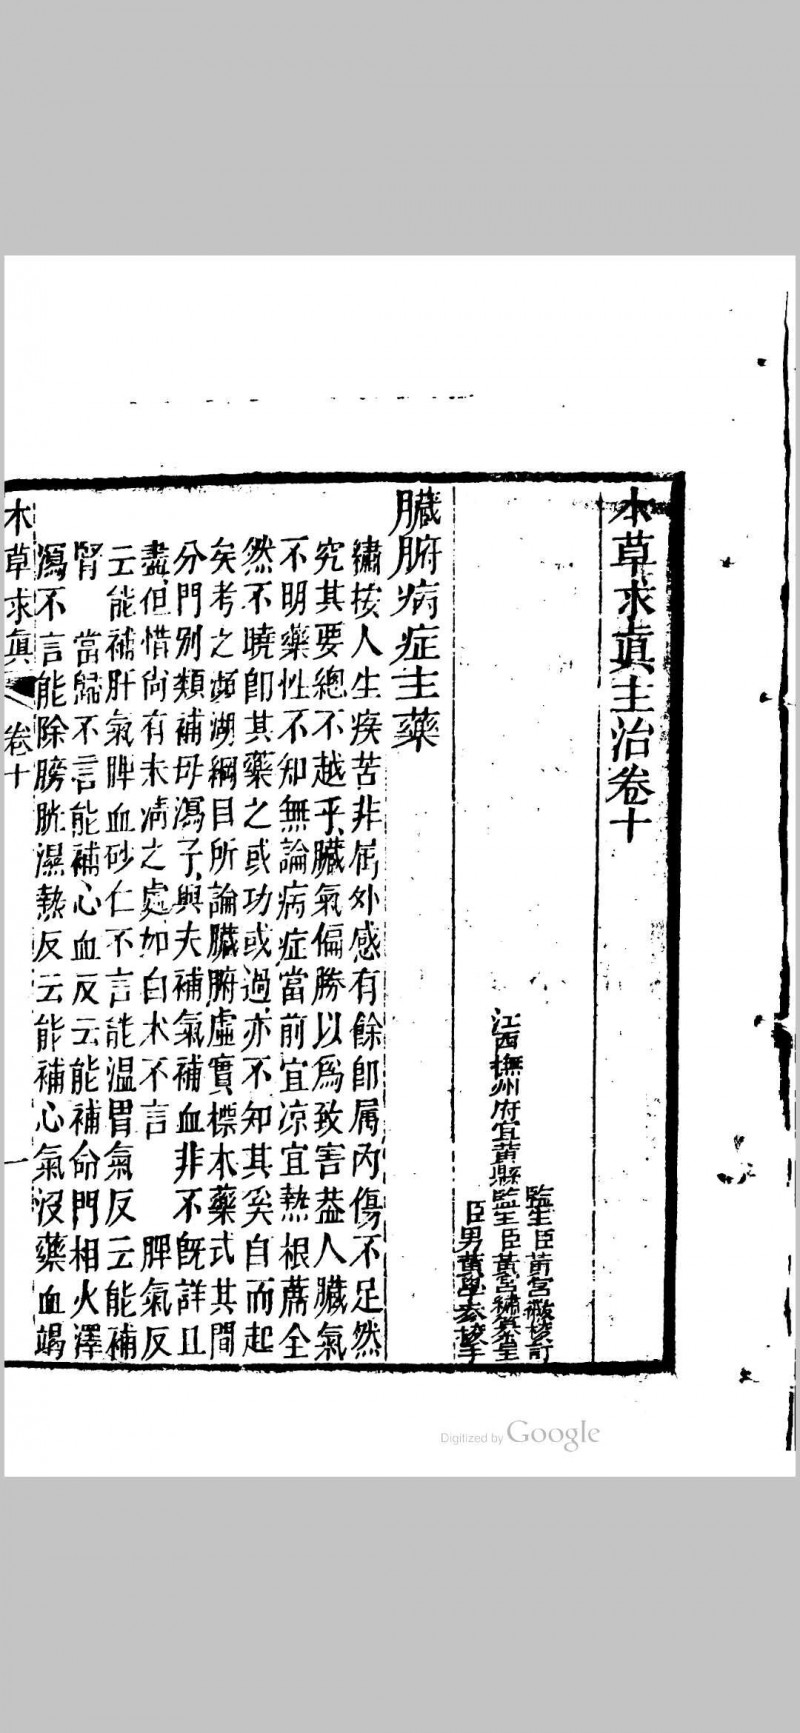 本草求眞主治卷十
監生臣黃宮黻校訂
江西撫州府宜黃縣監生臣黃宮繡篹呈
臣男黃學泰挍字
臟腑病症主藥
繡按人生疾苦非屬外感有餘卽屬內傷不足然
究其要總不越乎臟氣偏勝以爲致害葢人臟氣
不明藥性不知無論病症當前宜凉宜熱根蔕全
然不曉卽其藥之或功或過亦不知其奚自而起
矣考之瀕湖綱目所論臟腑虛實標本藥式其間
分門別類補母瀉子與夫補氣補血非不旣詳且
盡但惜尚有未淸之處如白朮不言 脾氣反
云能補肝氣脾血砂仁不言能温胃氣反云能補
腎 當歸不言能補心血反云能補命門相火澤
瀉不言能除膀胱濕熱反云能補心氣沒藥血竭
本草求眞 卷十 一
Digitized by Google